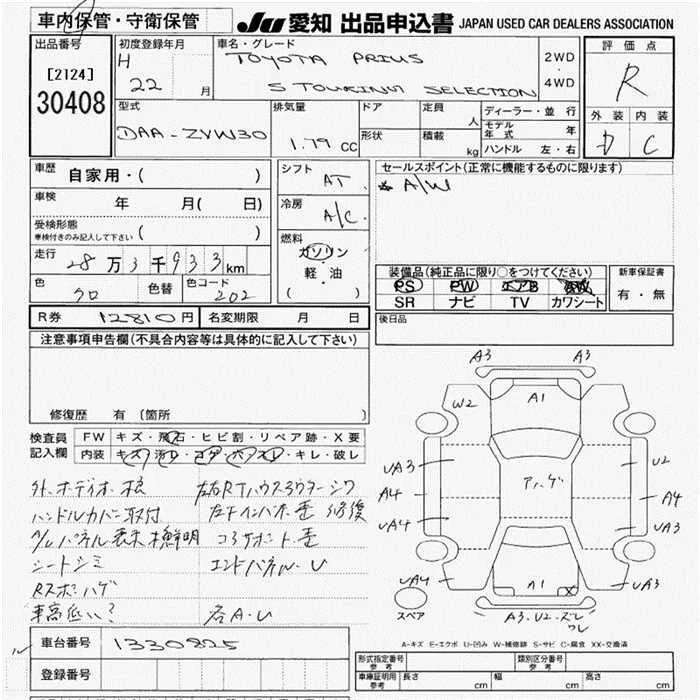 車内保管・守衛保管
JU 愛知 出品申込書 JAPAN USED CAR DEALERS ASSOCIATION
出品番号 初度登録年月 車名・グレード 評価点
H 22 月 TOYOTA PRIUS 2WD
[2124] S TOURING SELECTION 4WD R
30408
型式 排気量 ドア 定員 人 ディーラー・並行 外装 内装
DAA-ZVW30 1.79 CC 形状 積載 kg モデル年式 年 D C
ハンドル 左・右
車歴 自家用・( ) シフト AT セールスポイント(正常に機能するものに限ります)
A/W
車検 年 月( 日) 冷房 A/C
受検形態 ( )
車検付きのみ記入して下さい
燃料 ガソリン
走行 28万3千933km 軽・油
( ・ )
装備品(純正品に限り○をつけてください) 新車保証書
色 クロ 色替 色コード 202
PS PW エアB
SR ナビ TV カワシート 有・無
R券 12810円 名変期限 月 日 後日品
注意事項申告欄(不具合内容等は具体的に記入して下さい)
修復歴 有 (箇所 )
検査員 FW キズ・飛石・ヒビ割・リペア跡・X要
記入欄 内装 キズ・汚レ・コゲ・穴・スレ・キレ・破レ
外、オーディオ欠 左右RTハウスアウターシワ
ハンドルカバー取付
シートシミ エンドパネル-U
Rスポハゲ
車高低い? 各A・U
A3 A3
A1
W2
UA3 U2
A4 アハゲ A4
UA4 UA3
UA4 A1 UA3
スペア A3・U2・ズレ
ワレ
車台番号 1330825
登録番号
A-キズ E-エクボ U-凹み W-補修跡 S-サビ C-腐食 XX-交換済
形式指定番号 参考 類別区分番号 参考
車庫証明用 参考 長さ cm 幅 cm 高さ cm